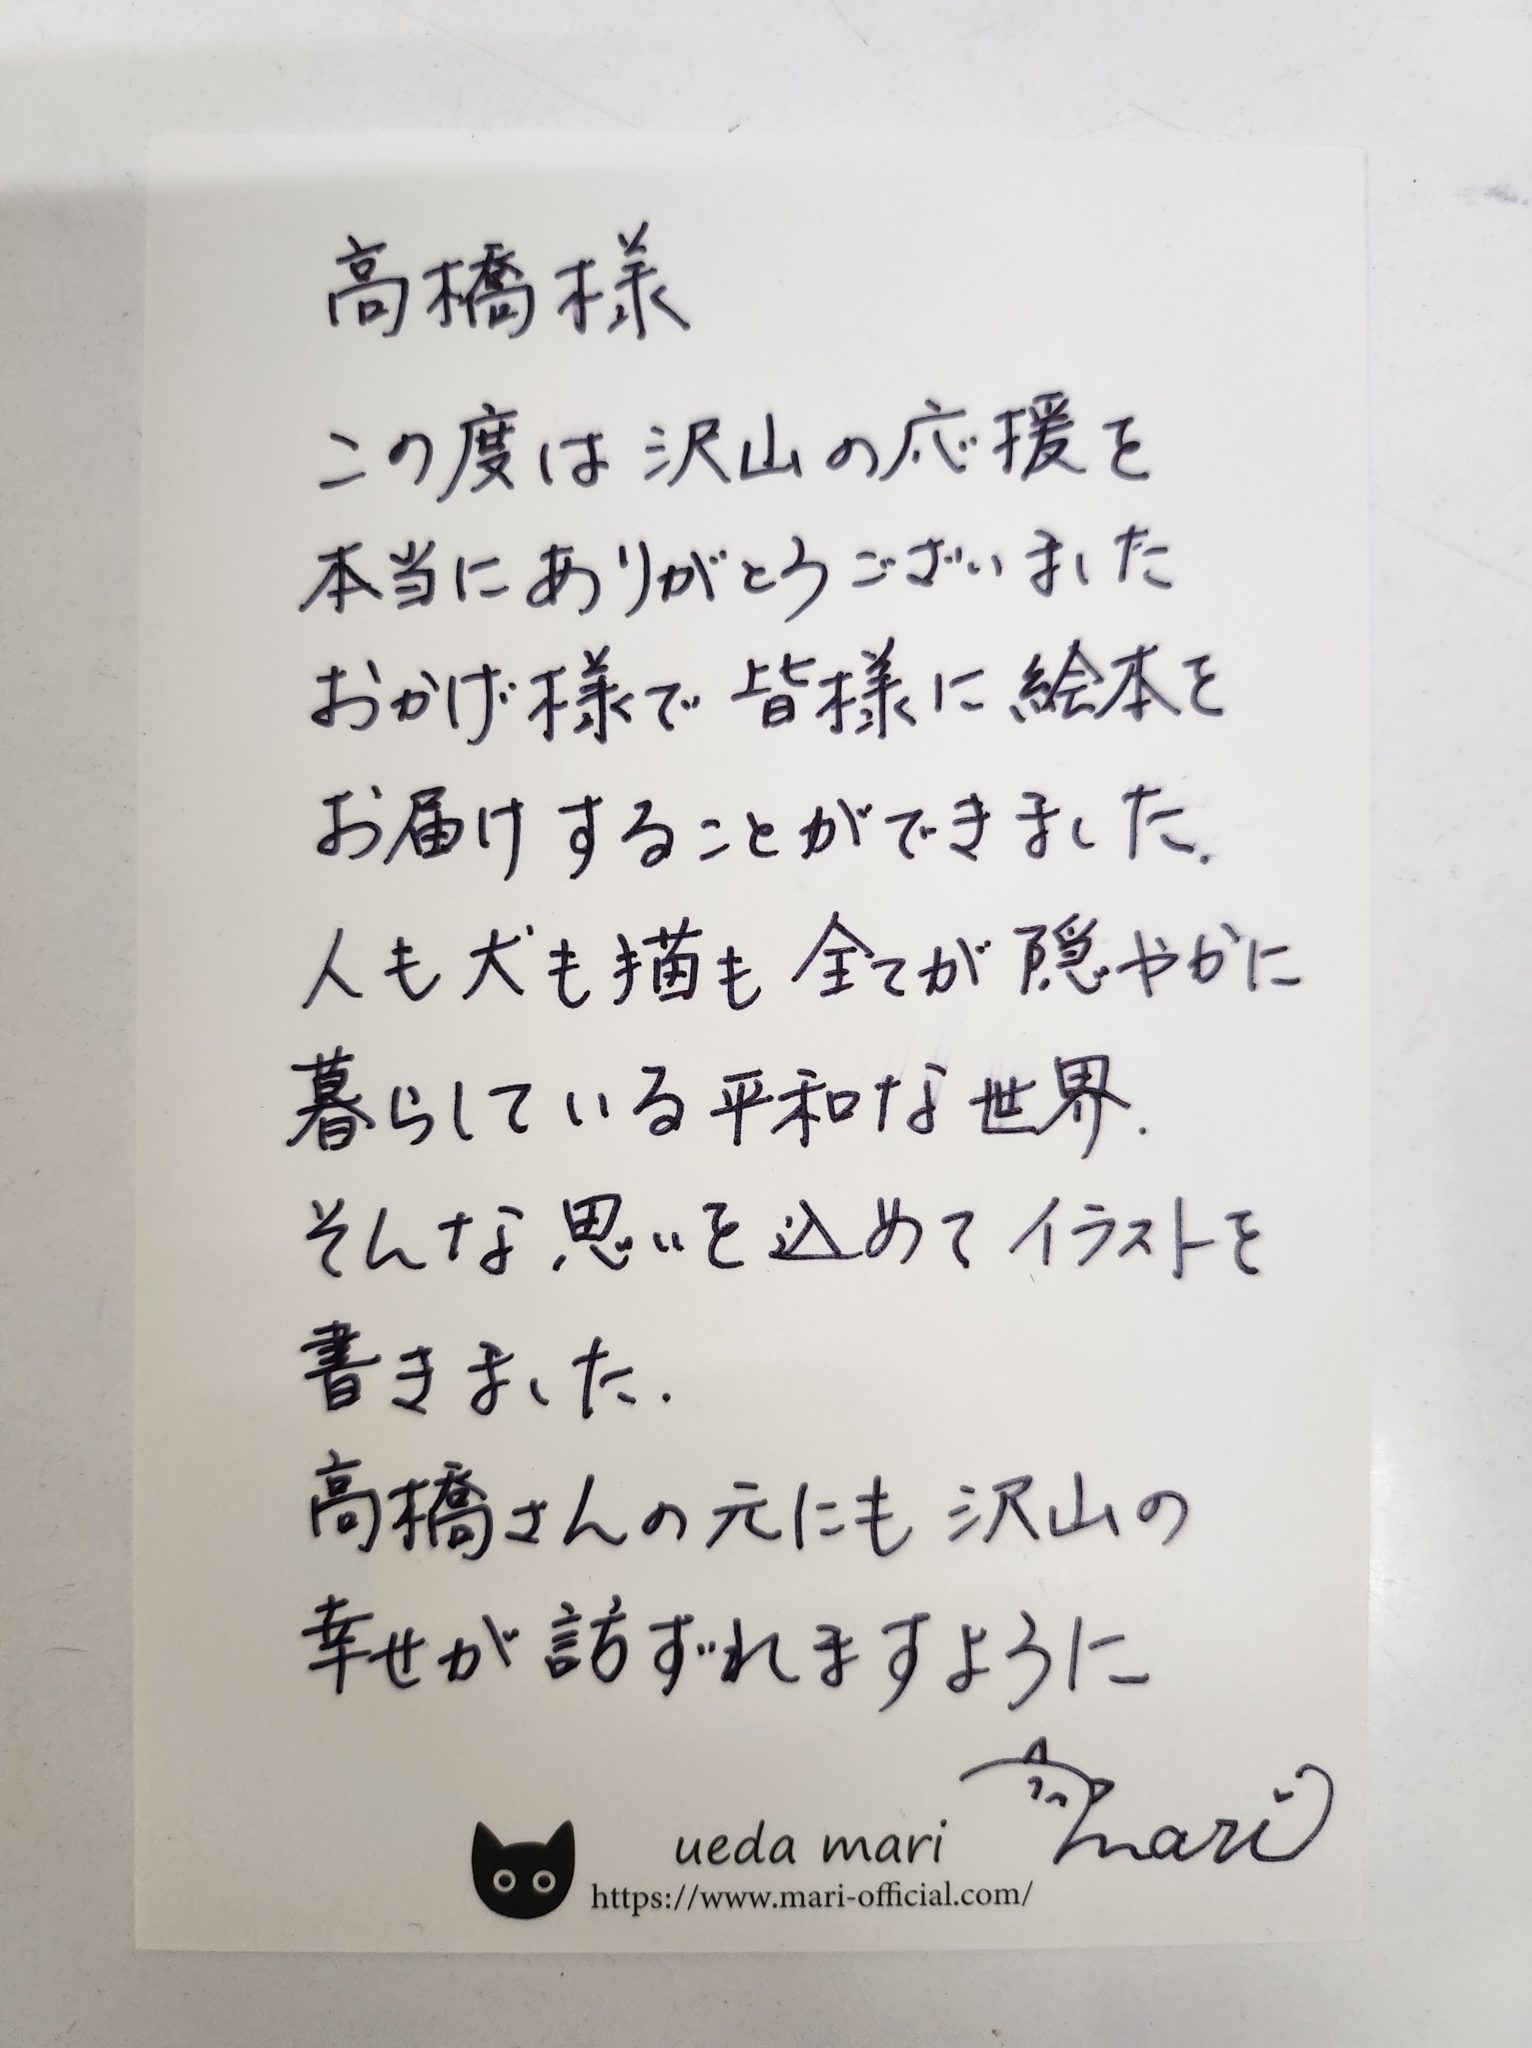 高橋様
この度は沢山の応援を
本当にありがとうございました
おかげ様で皆様に絵本を
お届けすることができました.
人も犬も猫も全てが隠やかに
暮らしている平和な世界.
そんな思いを込めてイラストを
書きました.
高橋さんの元にも沢山の
幸せが訪ずれますように
mari
ueda mari
https://www.mari-official.com/